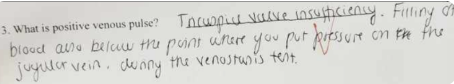 3. What is positive venous pulse? Tricuspid valve insufficiency. Filling of
blood also below the point where you put pressure on the the
jugular vein. during the venostasis test.